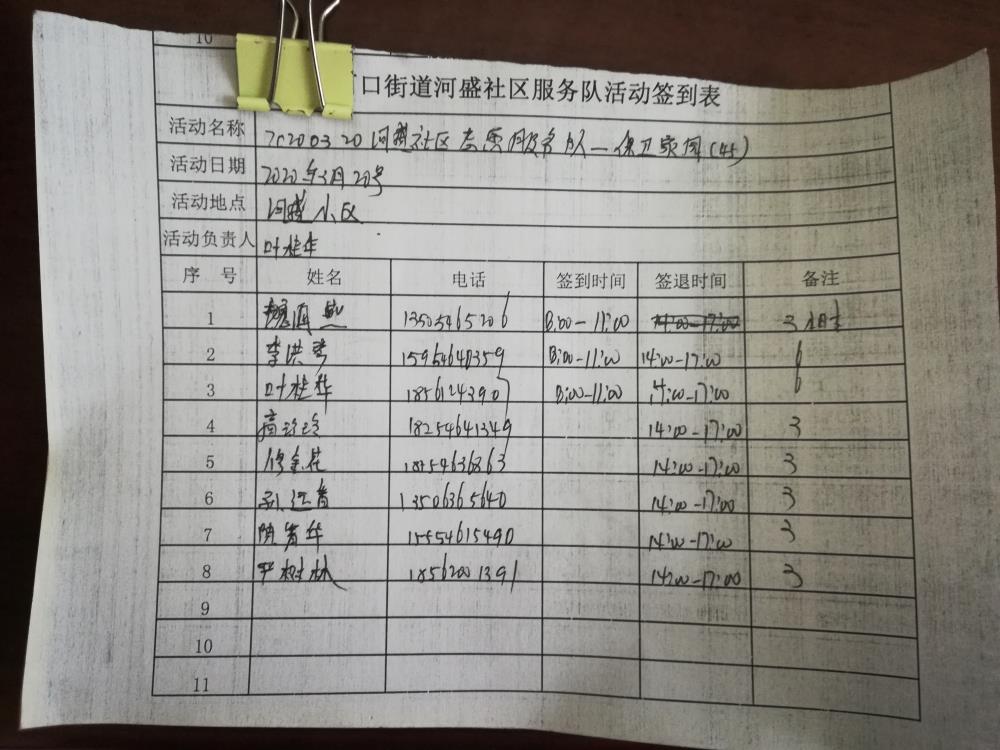 10
口街道河盛社区服务队活动签到表
活动名称 20200320河盛社区志愿服务队—保卫家园(45)
活动日期 2020年3月20号
活动地点 河盛小区
活动负责人 叶桂华
序 号 姓名 电话 签到时间 签退时间 备注
1 13505465206 8:00-11:00 14:00-17:00 3
2 李洪秀 15954640359 8:00-11:00 14:00-17:00 6
3 叶桂华 18561243907 8:00-11:00 14:00-17:00 6
4 高珍珍 18254641349 14:00-17:00 3
5 修金花 18754636863 14:00-17:00 3
6 13506365640 14:00-17:00 3
7 15554615490 14:00-17:00 3
8 严树林 18562001391 14:00-17:00 3
9
10
11